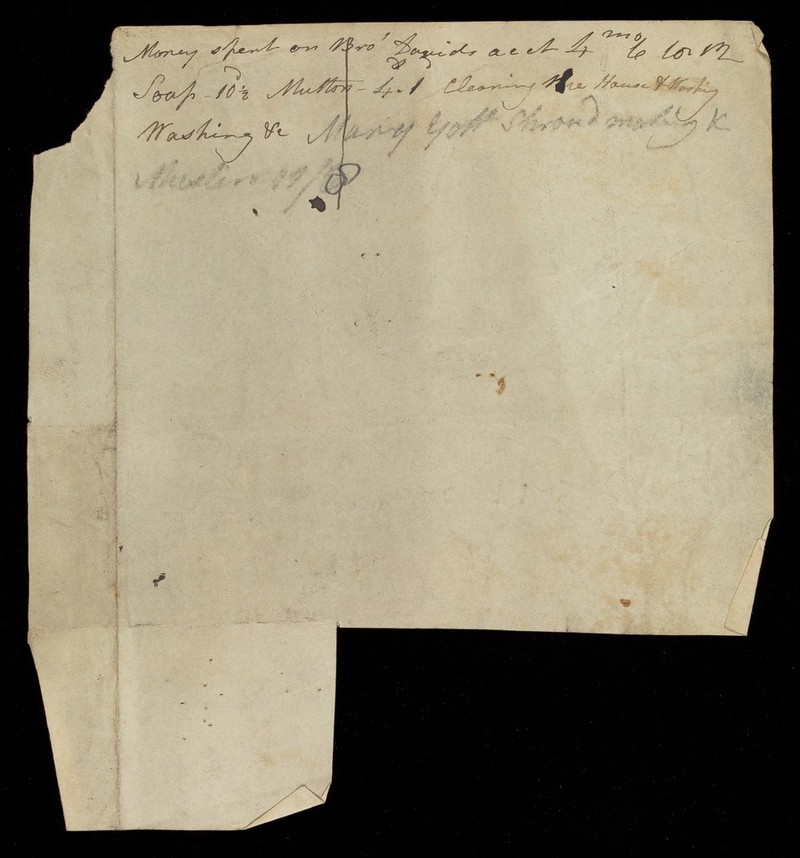 Money spent on Bro' Davids acct 4 mo 6
Soap - 10½ Mutton - 4.1 Cleaning the House &
Washing &c Mary Shroud making &
Muslin